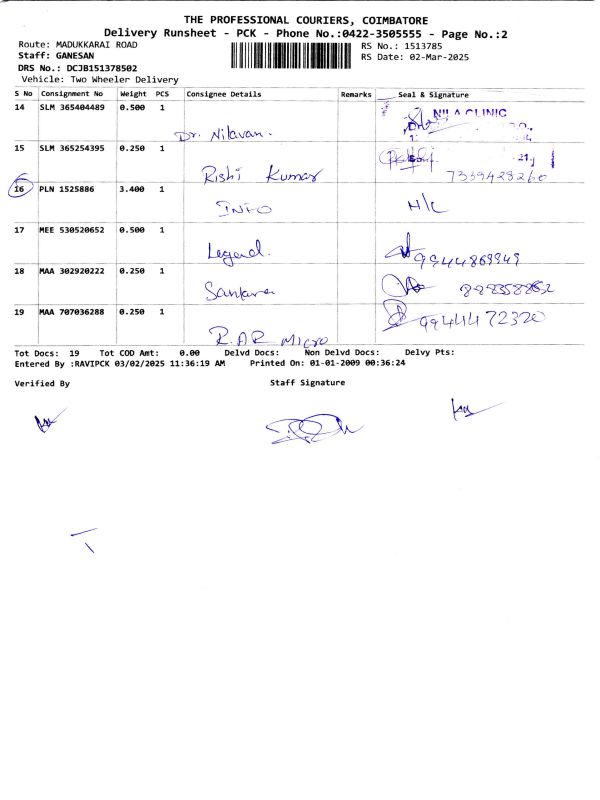 THE PROFESSIONAL COURIERS, COIMBATORE
Delivery Runsheet - PCK - Phone No.:0422-3505555 - Page No.:2
Route: MADUKKARAI ROAD RS No.: 1513785
Staff: GANESAN RS Date: 02-Mar-2025
DRS No.: DCJB151378502
Vehicle: Two Wheeler Delivery
S No Consignment No Weight PCS Consignee Details Remarks Seal & Signature
14 SLM 365404489 0.500 1 NILA CLINIC
Dr. Nilavan.
15 SLM 365254395 0.250 1
Rishi Kumar 7339428260
16 PLN 1525886 3.400 1
INFO H/C
17 MEE 530520652 0.500 1
Legend. 9944869949
18 MAA 302920222 0.250 1
Sankara
19 MAA 707036288 0.250 1 9944472320
R.AR Micro
Tot Docs: 19 Tot COD Amt: 0.00 Delvd Docs: Non Delvd Docs: Delvy Pts:
Entered By :RAVIPCK 03/02/2025 11:36:19 AM Printed On: 01-01-2009 00:36:24
Verified By Staff Signature